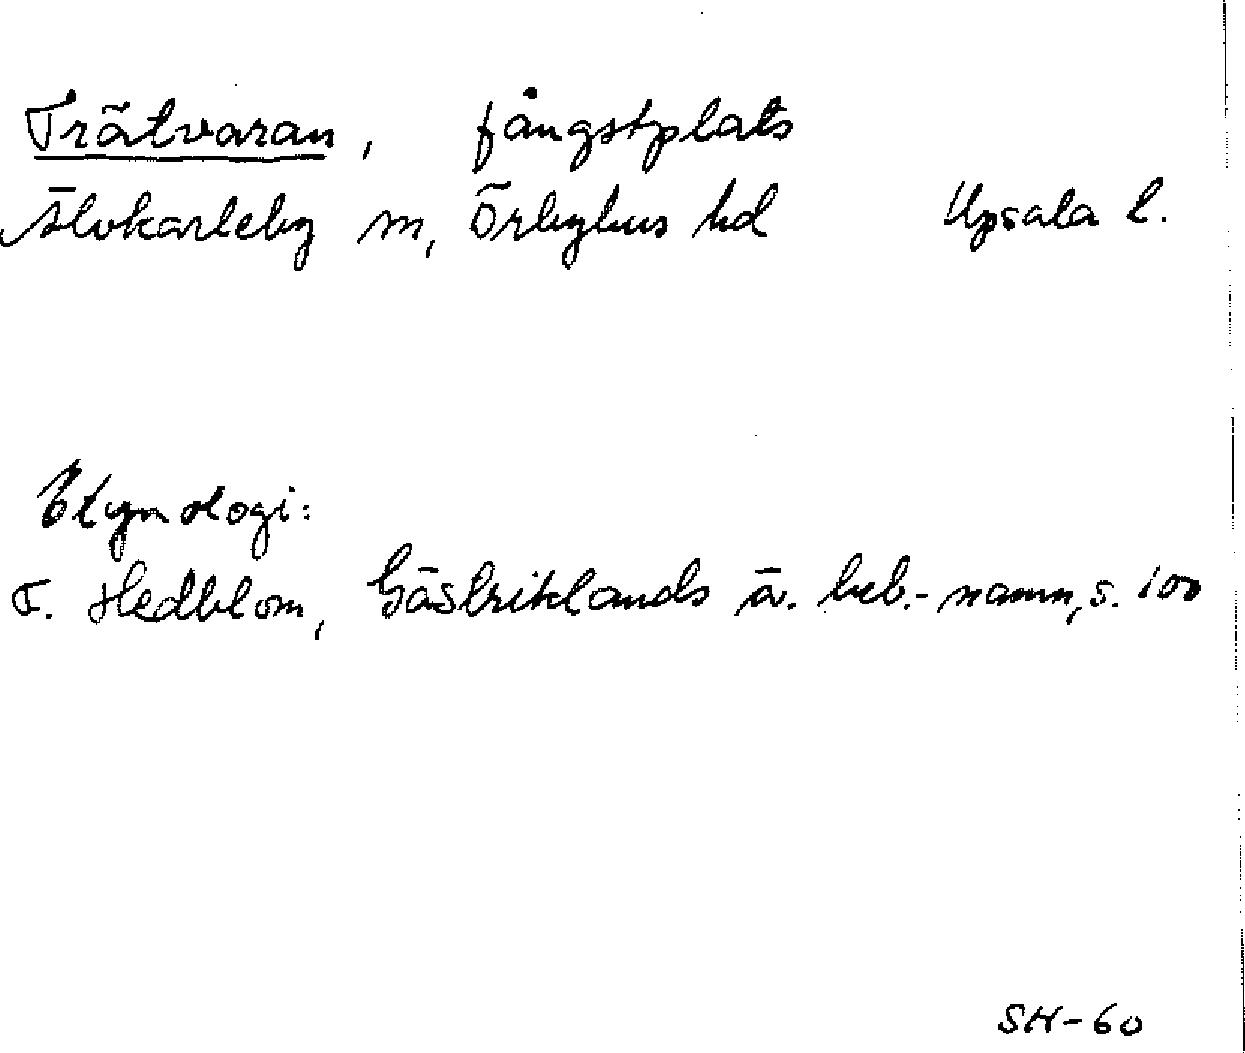 Trätvaran, fångstplats
Älvkarleby sn, Örbyhus hd Upsala l.
Etymologi:
F. Hedblom, Gästriklands ä. beb.-namn, s. 100
SH-60